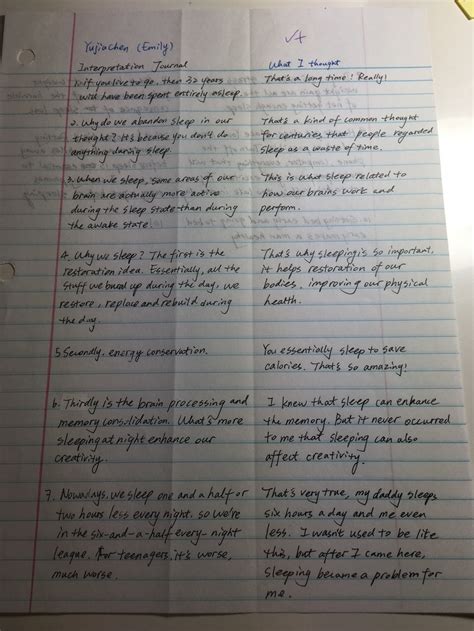 √+
Yujiachen (Emily)
Interpretation Journal
What I thought
1. If you live to 90, then 32 years
will have been spent entirely asleep.
That's a long time! Really!
2. Why do we abandon sleep in our
thought? It's because you don't do
anything during sleep.
That's a kind of common thought
for centuries that people regarded
sleep as a waste of time.
3. When we sleep, some areas of our
brain are actually more active
during the sleep state than during
the awake state.
This is what sleep related to
how our brains work and
perform.
4. Why we sleep? The first is the
restoration idea. Essentially, all the
stuff we burned up during the day, we
restore, replace and rebuild during
the day.
That's why sleeping is so important,
it helps restoration of our
bodies, improving our physical
health.
5 Secondly, energy conservation.
You essentially sleep to save
calories. That's so amazing!
6. Thirdly is the brain processing and
memory consolidation. What's more
sleeping at night enhance our
creativity.
I knew that sleep can enhance
the memory. But it never occurred
to me that sleeping can also
affect creativity.
7. Nowadays, we sleep one and a half or
two hours less every night. so we're
in the six-and-a-half-every-night
league. For teenagers, it's worse,
much worse.
That's very true, my daddy sleeps
six hours a day and me even
less. I wasn't used to be like
this, but after I came here,
sleeping became a problem for
me.